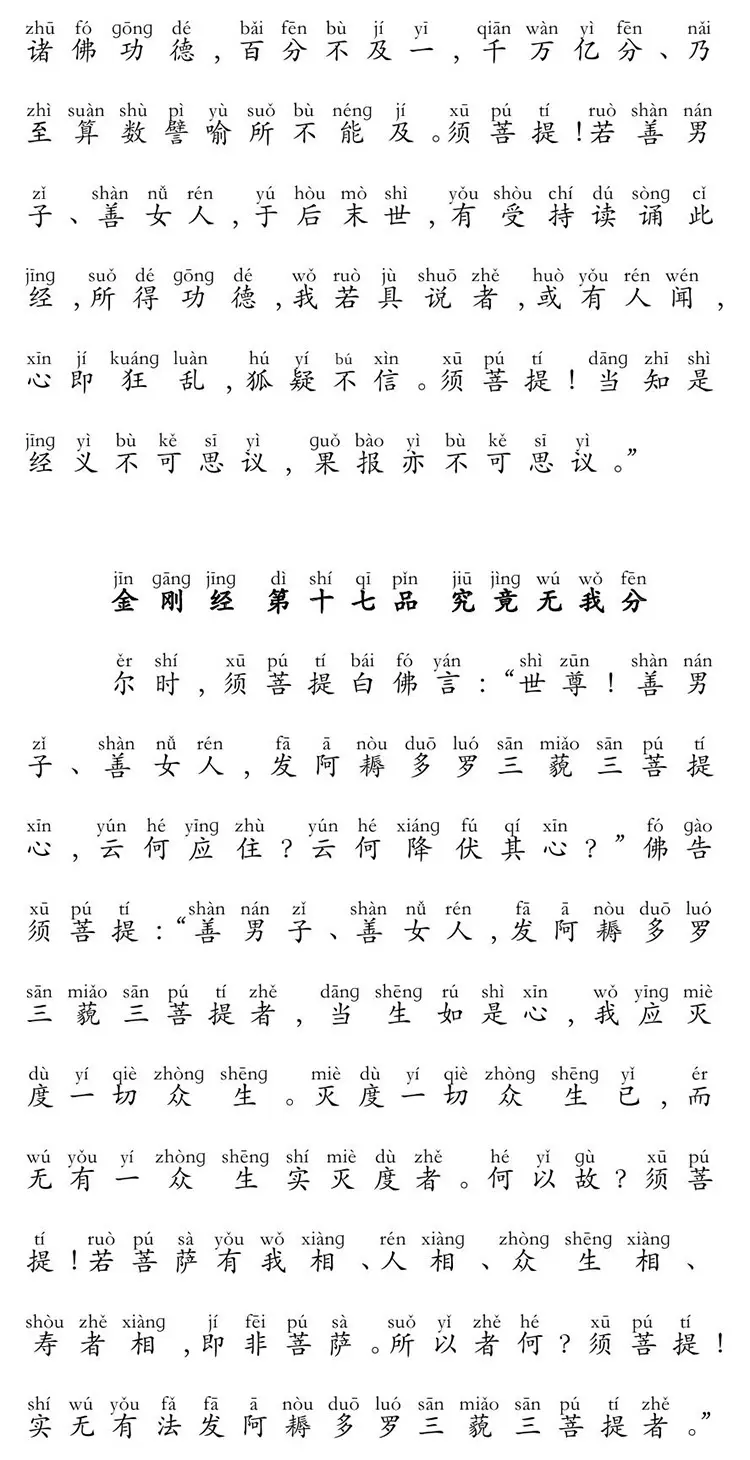 zhū fó gōng dé bǎi fēn bù jí yī qiān wàn yì fēn nǎi
诸佛功德，百分不及一，千万亿分、乃
zhì suàn shù pì yù suǒ bù néng jí xū pú tí ruò shàn nán
至算数譬喻所不能及。须菩提！若善男
zǐ shàn nǚ rén yú hòu mò shì yǒu shòu chí dú sòng cǐ
子、善女人，于后末世，有受持读诵此
jīng suǒ dé gōng dé wǒ ruò jù shuō zhě huò yǒu rén wén
经，所得功德，我若具说者，或有人闻，
xīn jí kuáng luàn hú yí bú xìn xū pú tí dāng zhī shì
心即狂乱，狐疑不信。须菩提！当知是
jīng yì bù kě sī yì guǒ bào yì bù kě sī yì
经义不可思议，果报亦不可思议。”
jīn gāng jīng dì shí qī pǐn jiū jìng wú wǒ fēn
金刚经 第十七品 究竟无我分
ěr shí xū pú tí bái fó yán shì zūn shàn nán
尔时，须菩提白佛言：“世尊！善男
zǐ shàn nǚ rén fā ā nòu duō luó sān miǎo sān pú tí
子、善女人，发阿耨多罗三藐三菩提
xīn yún hé yīng zhù yún hé xiáng fú qí xīn fó gào
心，云何应住？云何降伏其心？”佛告
xū pú tí shàn nán zǐ shàn nǚ rén fā ā nòu duō luó
须菩提：“善男子、善女人，发阿耨多罗
sān miǎo sān pú tí zhě dāng shēng rú shì xīn wǒ yīng miè
三藐三菩提者，当生如是心，我应灭
dù yí qiè zhòng shēng miè dù yí qiè zhòng shēng yǐ ér
度一切众生。灭度一切众生已，而
wú yǒu yí zhòng shēng shí miè dù zhě hé yǐ gù xū pú
无有一众生实灭度者。何以故？须菩
tí ruò pú sà yǒu wǒ xiàng rén xiàng zhòng shēng xiàng
提！若菩萨有我相、人相、众生相、
shòu zhě xiàng jí fēi pú sà suǒ yǐ zhě hé xū pú tí
寿者相，即非菩萨。所以者何？须菩提！
shí wú yǒu fǎ fā ā nòu duō luó sān miǎo sān pú tí zhě
实无有法发阿耨多罗三藐三菩提者。”